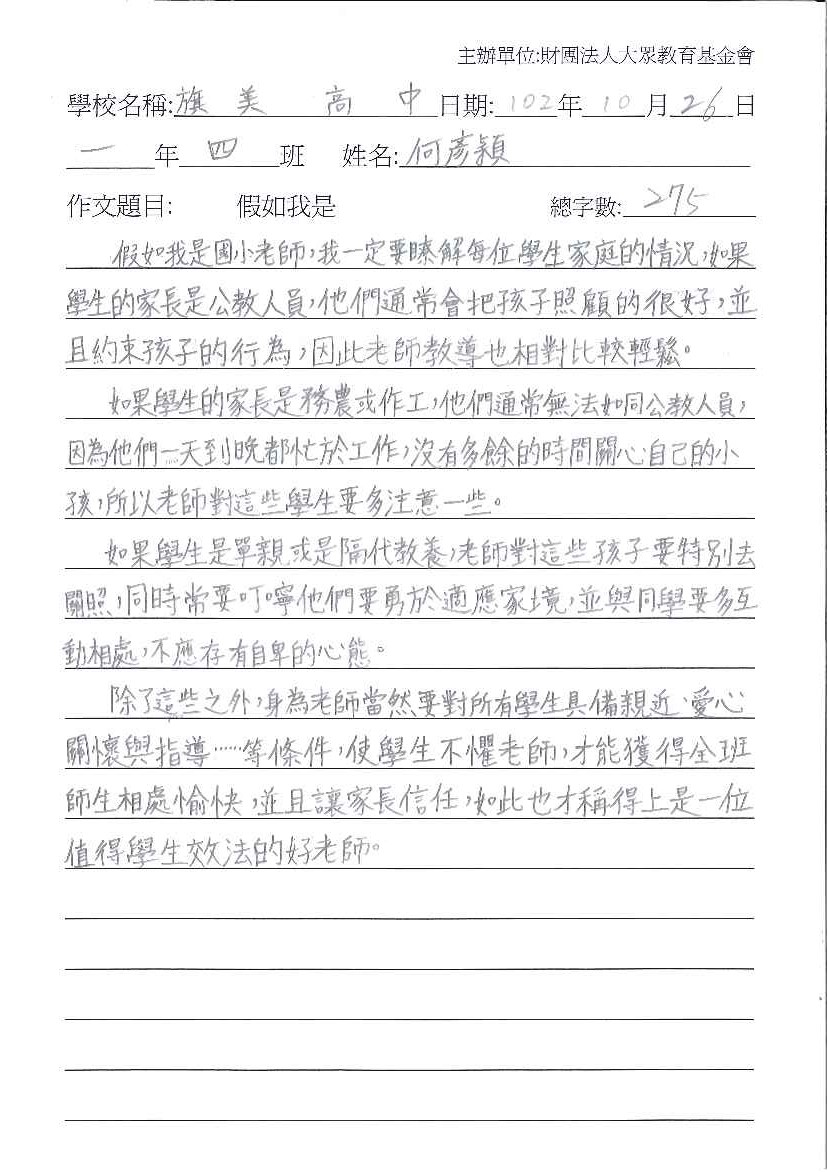 主辦單位:財團法人大眾教育基金會
學校名稱:旗美高中日期:102年10月26日
一年四班 姓名:何彥穎
作文題目: 假如我是 總字數:275
假如我是國小老師,我一定要瞭解每位學生家庭的情況,如果
學生的家長是公教人員,他們通常會把孩子照顧的很好,並
且約束孩子的行為,因此老師教導也相對比較輕鬆。
如果學生的家長是務農或作工,他們通常無法如同公教人員,
因為他們一天到晚都忙於工作,沒有多餘的時間關心自己的小
孩,所以老師對這些學生要多注意一些。
如果學生是單親或是隔代教養,老師對這些孩子要特別去
關照,同時常要叮嚀他們要勇於適應家境,並與同學要多互
動相處,不應存有自卑的心態。
除了這些之外,身為老師當然要對所有學生具備親近、愛心
關懷與指導……等條件,使學生不懼老師,才能獲得全班
師生相處愉快,並且讓家長信任,如此也才稱得上是一位
值得學生效法的好老師。